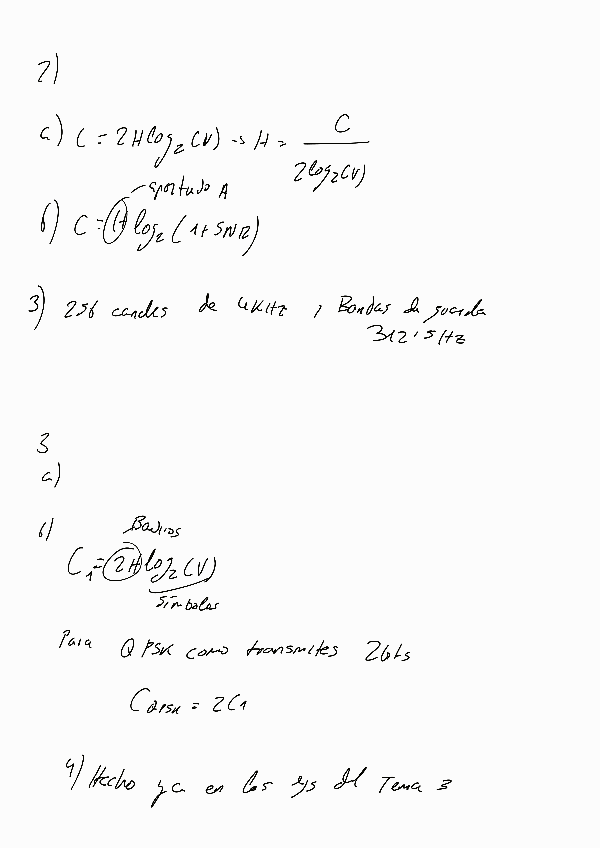 2)
a) C = 2H log₂(V) → H = C / 2log₂(V)
apartado A
b) C = H log₂(1+SNR)
3) 256 canales de 4KHz , Bandas de guarda
312'5Hz
3
a)
b)
Baudios
C₁ = 2H log₂(V)
Símbolos
Para QPSK como transmites 2bits
C_QPSK = 2C₁
4) Hecho ya en los ejs del Tema 3